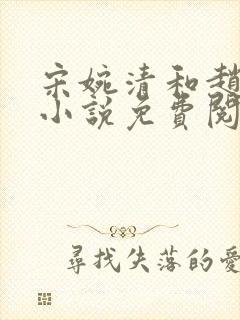 宋婉清和趙
小說免費閱
尋找失落的愛